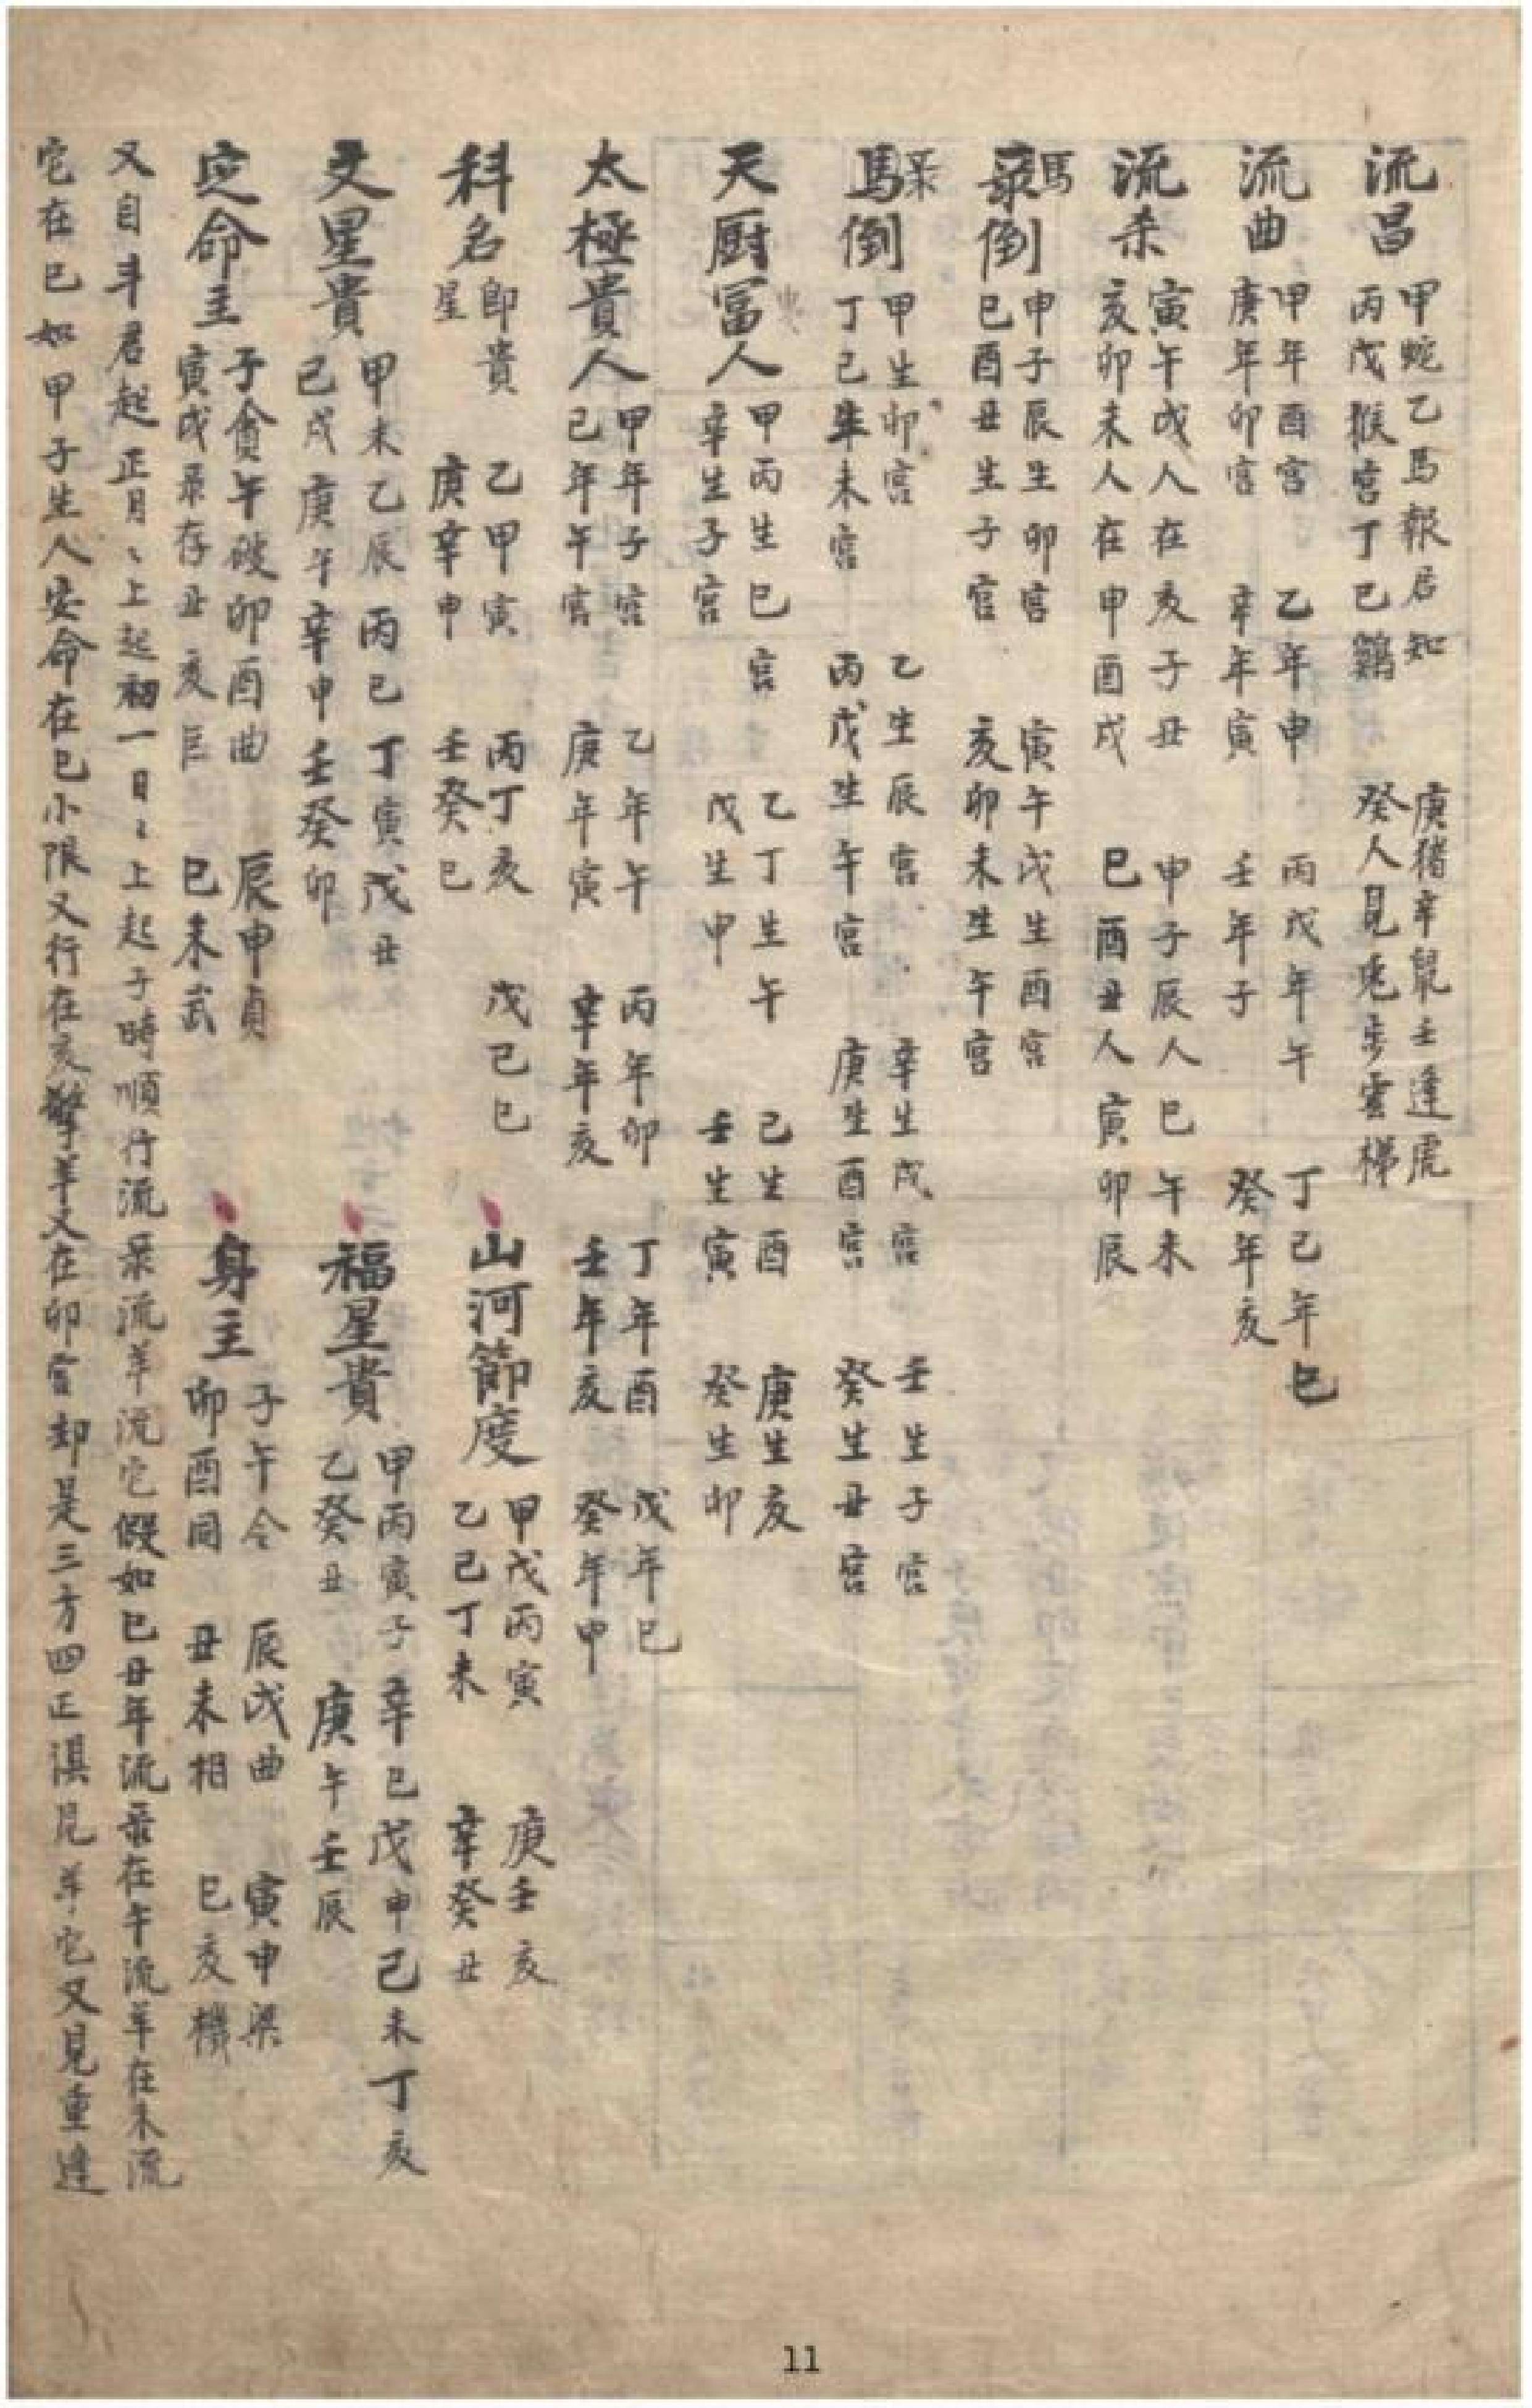 流昌 甲蛇乙馬報君知 庚猪辛鼠壬逢虎
丙戊猴宮丁己鷄 癸人見兎步雲梯
流曲 甲年酉宮 乙年申 丙戊年午 丁己年巳
庚年卯宮 辛年寅 壬年子 癸年亥
流杀 寅午戌人在亥子丑 申子辰人巳午未
亥卯未人在申酉戌 巳酉丑人寅卯辰
馬
祿倒 申子辰生卯宮 寅午戌生酉宮
巳酉丑生子宮 亥卯未生午宮
馬倒 甲生卯宮 乙生辰宮 辛生戌宮 壬生子宮
丁己生未宮 丙戊生午宮 庚生酉宮 癸生丑宮
天厨冨人 甲丙生巳宮 乙丁生午 己生酉 庚生亥
辛生子宮 戊生申 壬生寅 癸生卯
太極貴人 甲年子宮 乙年午 丙年卯 丁年酉 戊年巳
己年午宮 庚年寅 辛年亥 壬年亥 癸年申
科名 即貴 乙甲寅 丙丁亥 戊己巳
星 庚辛申 壬癸巳
山河節度 甲戊丙寅 庚壬亥
乙己丁未 辛癸丑
文星貴 甲未乙辰 丙巳丁寅戊丑
己戌庚午辛申壬癸卯
福星貴 甲丙寅子辛巳戊申己未丁亥
乙癸丑 庚午壬辰
定命主 子貪午破卯酉曲 辰申貞
寅戌彔存丑亥巨 巳未武
身主 子午令 辰戌曲 寅申梁
卯酉同 丑未相 巳亥機
又自斗君起正月〻上起初一日〻上起子時順行流彔流羊流它假如己丑年流彔在午流羊在未流
它在巳如甲子生人安命在巳小限又行在亥擎羊又在卯宮却是三方四正俱見羊它又見重逢
11